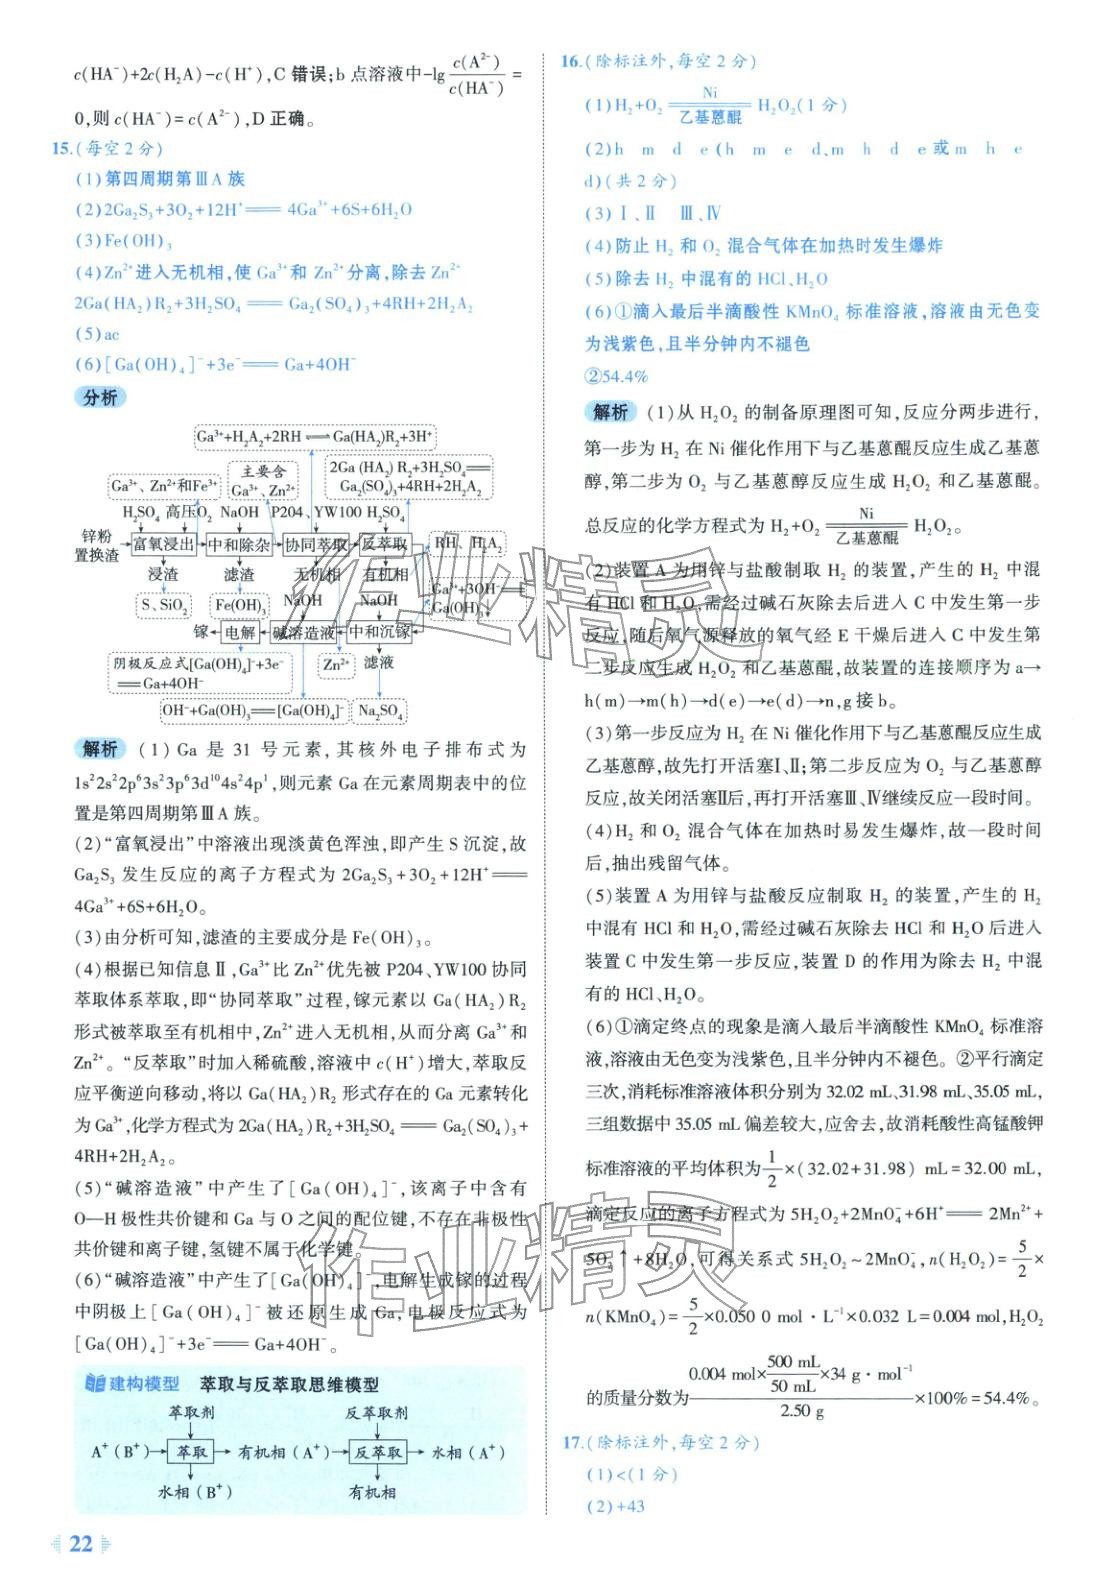 c(HA⁻)+2c(H₂A)-c(H⁺),C 错误;b 点溶液中-lg c(A²⁻)/c(HA⁻) =
0,则 c(HA⁻)=c(A²⁻),D 正确。
15.(每空 2 分)
(1)第四周期第ⅢA 族
(2)2Ga₂S₃+3O₂+12H⁺══ 4Ga³⁺+6S+6H₂O
(3)Fe(OH)₃
(4)Zn²⁺进入无机相,使 Ga³⁺和 Zn²⁺分离,除去 Zn²⁺
2Ga(HA₂)R₂+3H₂SO₄ ══ Ga₂(SO₄)₃+4RH+2H₂A₂
(5)ac
(6)[Ga(OH)₄]⁻+3e⁻══ Ga+4OH⁻
分析
Ga³⁺+H₂A₂+2RH⇌Ga(HA₂)R₂+3H⁺
Ga³⁺、Zn²⁺和Fe³⁺
主要含
Ga³⁺、Zn²⁺
2Ga (HA₂) R₂+3H₂SO₄══
Ga₂(SO₄)₃+4RH+2H₂A₂
H₂SO₄ 高压O₂ NaOH P204、YW100 H₂SO₄
锌粉
置换渣
富氧浸出 中和除杂 协同萃取 反萃取 RH、H₂A₂
浸渣 滤渣 无机相 有机相
Ga³⁺+3OH⁻══
Ga(OH)₃
S、SiO₂ Fe(OH)₃ NaOH NaOH
镓 电解 碱溶造液 中和沉镓
阴极反应式[Ga(OH)₄]⁻+3e⁻
══Ga+4OH⁻
Zn²⁺ 滤液
OH⁻+Ga(OH)₃══[Ga(OH)₄]⁻ Na₂SO₄
解析 (1) Ga 是 31 号元素, 其核外电子排布式为
1s²2s²2p⁶3s²3p⁶3d¹⁰4s²4p¹,则元素 Ga 在元素周期表中的位
置是第四周期第ⅢA 族。
(2)“富氧浸出”中溶液出现淡黄色浑浊,即产生 S 沉淀,故
Ga₂S₃ 发生反应的离子方程式为 2Ga₂S₃+3O₂+12H⁺══
4Ga³⁺+6S+6H₂O。
(3)由分析可知,滤渣的主要成分是 Fe(OH)₃。
(4)根据已知信息Ⅱ,Ga³⁺比 Zn²⁺优先被 P204、YW100 协同
萃取体系萃取,即“协同萃取”过程,镓元素以 Ga(HA₂)R₂
形式被萃取至有机相中,Zn²⁺进入无机相,从而分离 Ga³⁺和
Zn²⁺。“反萃取”时加入稀硫酸,溶液中 c(H⁺)增大,萃取反
应平衡逆向移动,将以 Ga(HA₂)R₂ 形式存在的 Ga 元素转化
为 Ga³⁺,化学方程式为 2Ga(HA₂)R₂+3H₂SO₄ ══ Ga₂(SO₄)₃+
4RH+2H₂A₂。
(5)“碱溶造液”中产生了[Ga(OH)₄]⁻,该离子中含有
O—H 极性共价键和 Ga 与 O 之间的配位键,不存在非极性
共价键和离子键,氢键不属于化学键。
(6)“碱溶造液”中产生了[Ga(OH)₄]⁻,电解生成镓的过程
中阴极上[Ga(OH)₄]⁻被还原生成 Ga,电极反应式为
[Ga(OH)₄]⁻+3e⁻══ Ga+4OH⁻。
建构模型 萃取与反萃取思维模型
萃取剂 反萃取剂
A⁺(B⁺)→萃取→有机相(A⁺)→反萃取→水相(A⁺)
水相(B⁺) 有机相
22
16.(除标注外,每空 2 分)
(1)H₂+O₂ ══(Ni/乙基蒽醌) H₂O₂(1 分)
(2)h m d e(h m e d、m h d e 或 m h e
d)(共 2 分)
(3)Ⅰ、Ⅱ Ⅲ、Ⅳ
(4)防止 H₂ 和 O₂ 混合气体在加热时发生爆炸
(5)除去 H₂ 中混有的 HCl、H₂O
(6)①滴入最后半滴酸性 KMnO₄ 标准溶液,溶液由无色变
为浅紫色,且半分钟内不褪色
②54.4%
解析 (1)从 H₂O₂ 的制备原理图可知,反应分两步进行,
第一步为 H₂ 在 Ni 催化作用下与乙基蒽醌反应生成乙基蒽
醇,第二步为 O₂ 与乙基蒽醇反应生成 H₂O₂ 和乙基蒽醌。
总反应的化学方程式为 H₂+O₂ ══(Ni/乙基蒽醌) H₂O₂。
(2)装置 A 为用锌与盐酸制取 H₂ 的装置,产生的 H₂ 中混
有 HCl 和 H₂O,需经过碱石灰除去后进入 C 中发生第一步
反应,随后氧气源释放的氧气经 E 干燥后进入 C 中发生第
二步反应生成 H₂O₂ 和乙基蒽醌,故装置的连接顺序为 a→
h(m)→m(h)→d(e)→e(d)→n,g 接 b。
(3)第一步反应为 H₂ 在 Ni 催化作用下与乙基蒽醌反应生成
乙基蒽醇,故先打开活塞Ⅰ、Ⅱ;第二步反应为 O₂ 与乙基蒽醇
反应,故关闭活塞Ⅱ后,再打开活塞Ⅲ、Ⅳ继续反应一段时间。
(4)H₂ 和 O₂ 混合气体在加热时易发生爆炸,故一段时间
后,抽出残留气体。
(5)装置 A 为用锌与盐酸反应制取 H₂ 的装置,产生的 H₂
中混有 HCl 和 H₂O,需经过碱石灰除去 HCl 和 H₂O 后进入
装置 C 中发生第一步反应,装置 D 的作用为除去 H₂ 中混
有的 HCl、H₂O。
(6)①滴定终点的现象是滴入最后半滴酸性 KMnO₄ 标准溶
液,溶液由无色变为浅紫色,且半分钟内不褪色。②平行滴定
三次,消耗标准溶液体积分别为 32.02 mL、31.98 mL、35.05 mL,
三组数据中 35.05 mL 偏差较大,应舍去,故消耗酸性高锰酸钾
标准溶液的平均体积为 1/2 ×(32.02+31.98) mL=32.00 mL,
滴定反应的离子方程式为 5H₂O₂+2MnO₄⁻+6H⁺══ 2Mn²⁺+
5O₂↑+8H₂O,可得关系式 5H₂O₂~2MnO₄⁻,n(H₂O₂)= 5/2 ×
n(KMnO₄)= 5/2 ×0.050 0 mol·L⁻¹×0.032 L=0.004 mol,H₂O₂
的质量分数为 (0.004 mol× 500 mL/50 mL ×34 g·mol⁻¹)/2.50 g ×100%=54.4%。
17.(除标注外,每空 2 分)
(1)<(1 分)
(2)+43
作业精灵
作业精灵